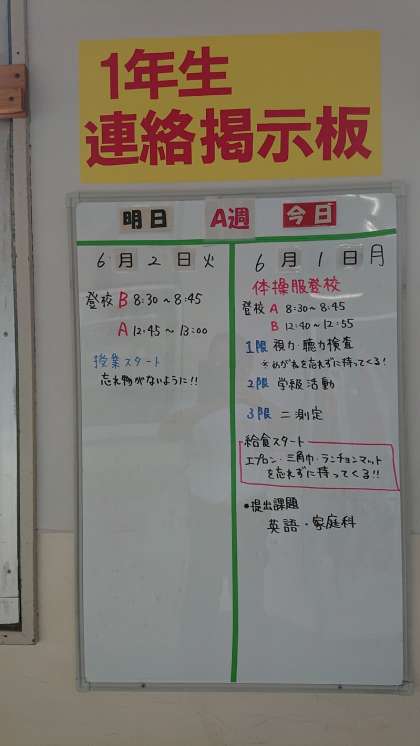 1年生
連絡掲示板
明日
A週
今日
6月2日火
登校 B 8:30〜8:45
A 12:45〜13:00
授業スタート
忘れ物がないように!!
6月1日月
体操服登校
登校 A 8:30〜8:45
B 12:40〜12:55
1限 視力・聴力検査
※めがねを忘れずに持ってくる!
2限 学級活動
3限 二測定
給食スタート
エプロン・三角巾・ランチョンマット
を忘れずに持ってくる!!
●提出課題
英語・家庭科